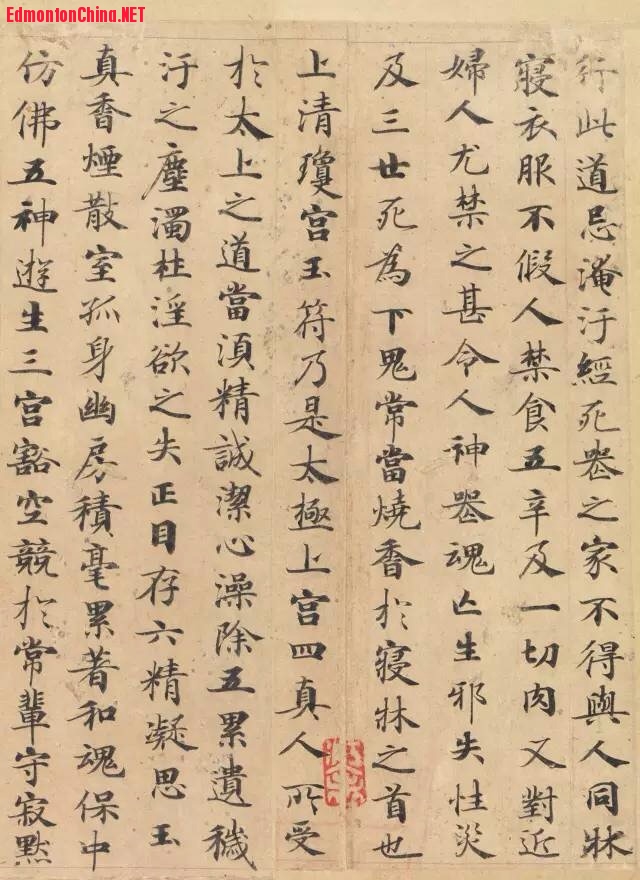 EdmontonChina.NET
行此道忌淹汙經死喪之家不得與人同牀
寢衣服不假人禁食五辛及一切肉又對近
婦人尤禁之甚令人神喪魂亡生邪失性災
及三世死為下鬼常當燒香於寢牀之首也
上清瓊宮玉符乃是太極上宮四真人所受
於太上之道當須精誠潔心澡除五累遺穢
汙之塵濁杜淫欲之失正目存六精凝思玉
真香煙散室孤身幽房積毫累著和魂保中
仿佛五神遊生三宮豁空競於常輩守寂默